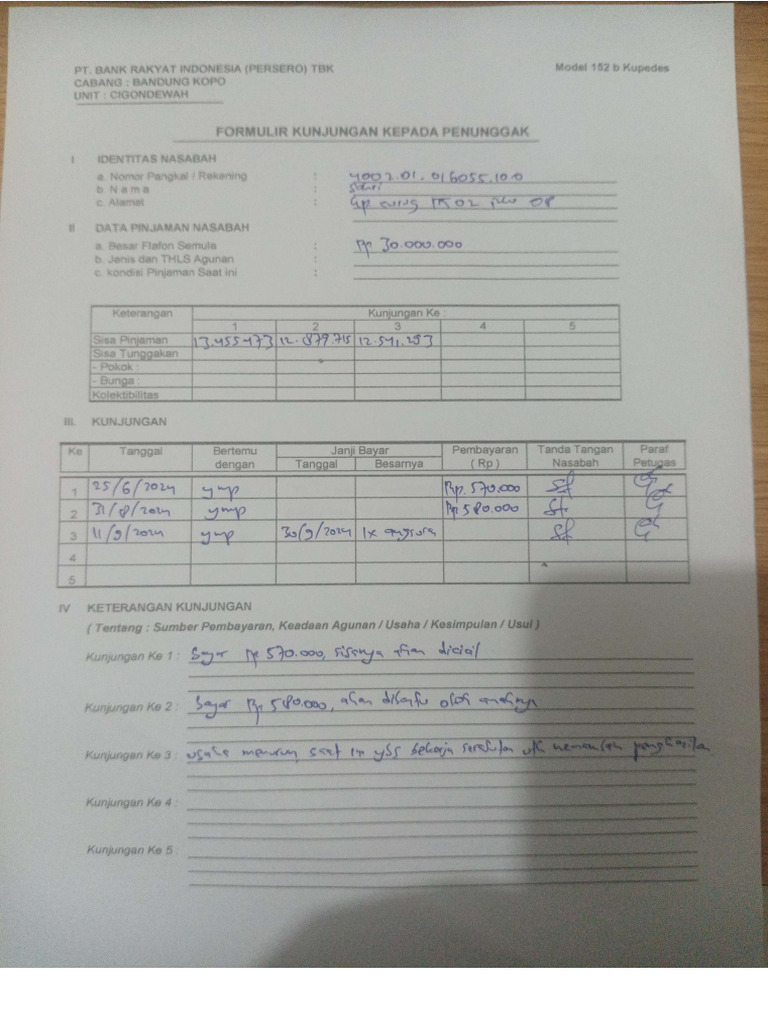 PT. BANK RAKYAT INDONESIA (PERSERO) TBK
Model 152 b Kupedes
CABANG : BANDUNG KOPO
UNIT : CIGONDEWAH
FORMULIR KUNJUNGAN KEPADA PENUNGGAK
I IDENTITAS NASABAH
a. Nomor Pangkal / Rekening : 4002.01.016055.10.0
b. N a m a :
c. Alamat : Gp curug 08
II DATA PINJAMAN NASABAH
a. Besar Flafon Semula : Rp 30.000.000
b. Jenis dan THLS Agunan :
c. kondisi Pinjaman Saat ini :
Keterangan Kunjungan Ke :
1 2 3 4 5
Sisa Pinjaman 13.455473 12.879.715 12.541.293
Sisa Tunggakan
- Pokok :
- Bunga :
Kolektibilitas
III. KUNJUNGAN
Ke Tanggal Bertemu dengan Janji Bayar Pembayaran ( Rp ) Tanda Tangan Nasabah Paraf Petugas
Tanggal Besarnya
1 25/6/2024 ymp Rp. 570.000
2 31/8/2024 ymp Rp 580.000
3 11/9/2024 ymp 30/9/2024 1x angsura
4
5
IV KETERANGAN KUNJUNGAN
( Tentang : Sumber Pembayaran, Keadaan Agunan / Usaha / Kesimpulan / Usul )
Kunjungan Ke 1 : Bayar Rp 570.000, sisanya akan dicicil
Kunjungan Ke 2 : Bayar Rp 580.000, akan dibantu oleh anaknya
Kunjungan Ke 3 : usaha menurun, saat ini ybs bekerja serabutan utk
Kunjungan Ke 4 :
Kunjungan Ke 5 :